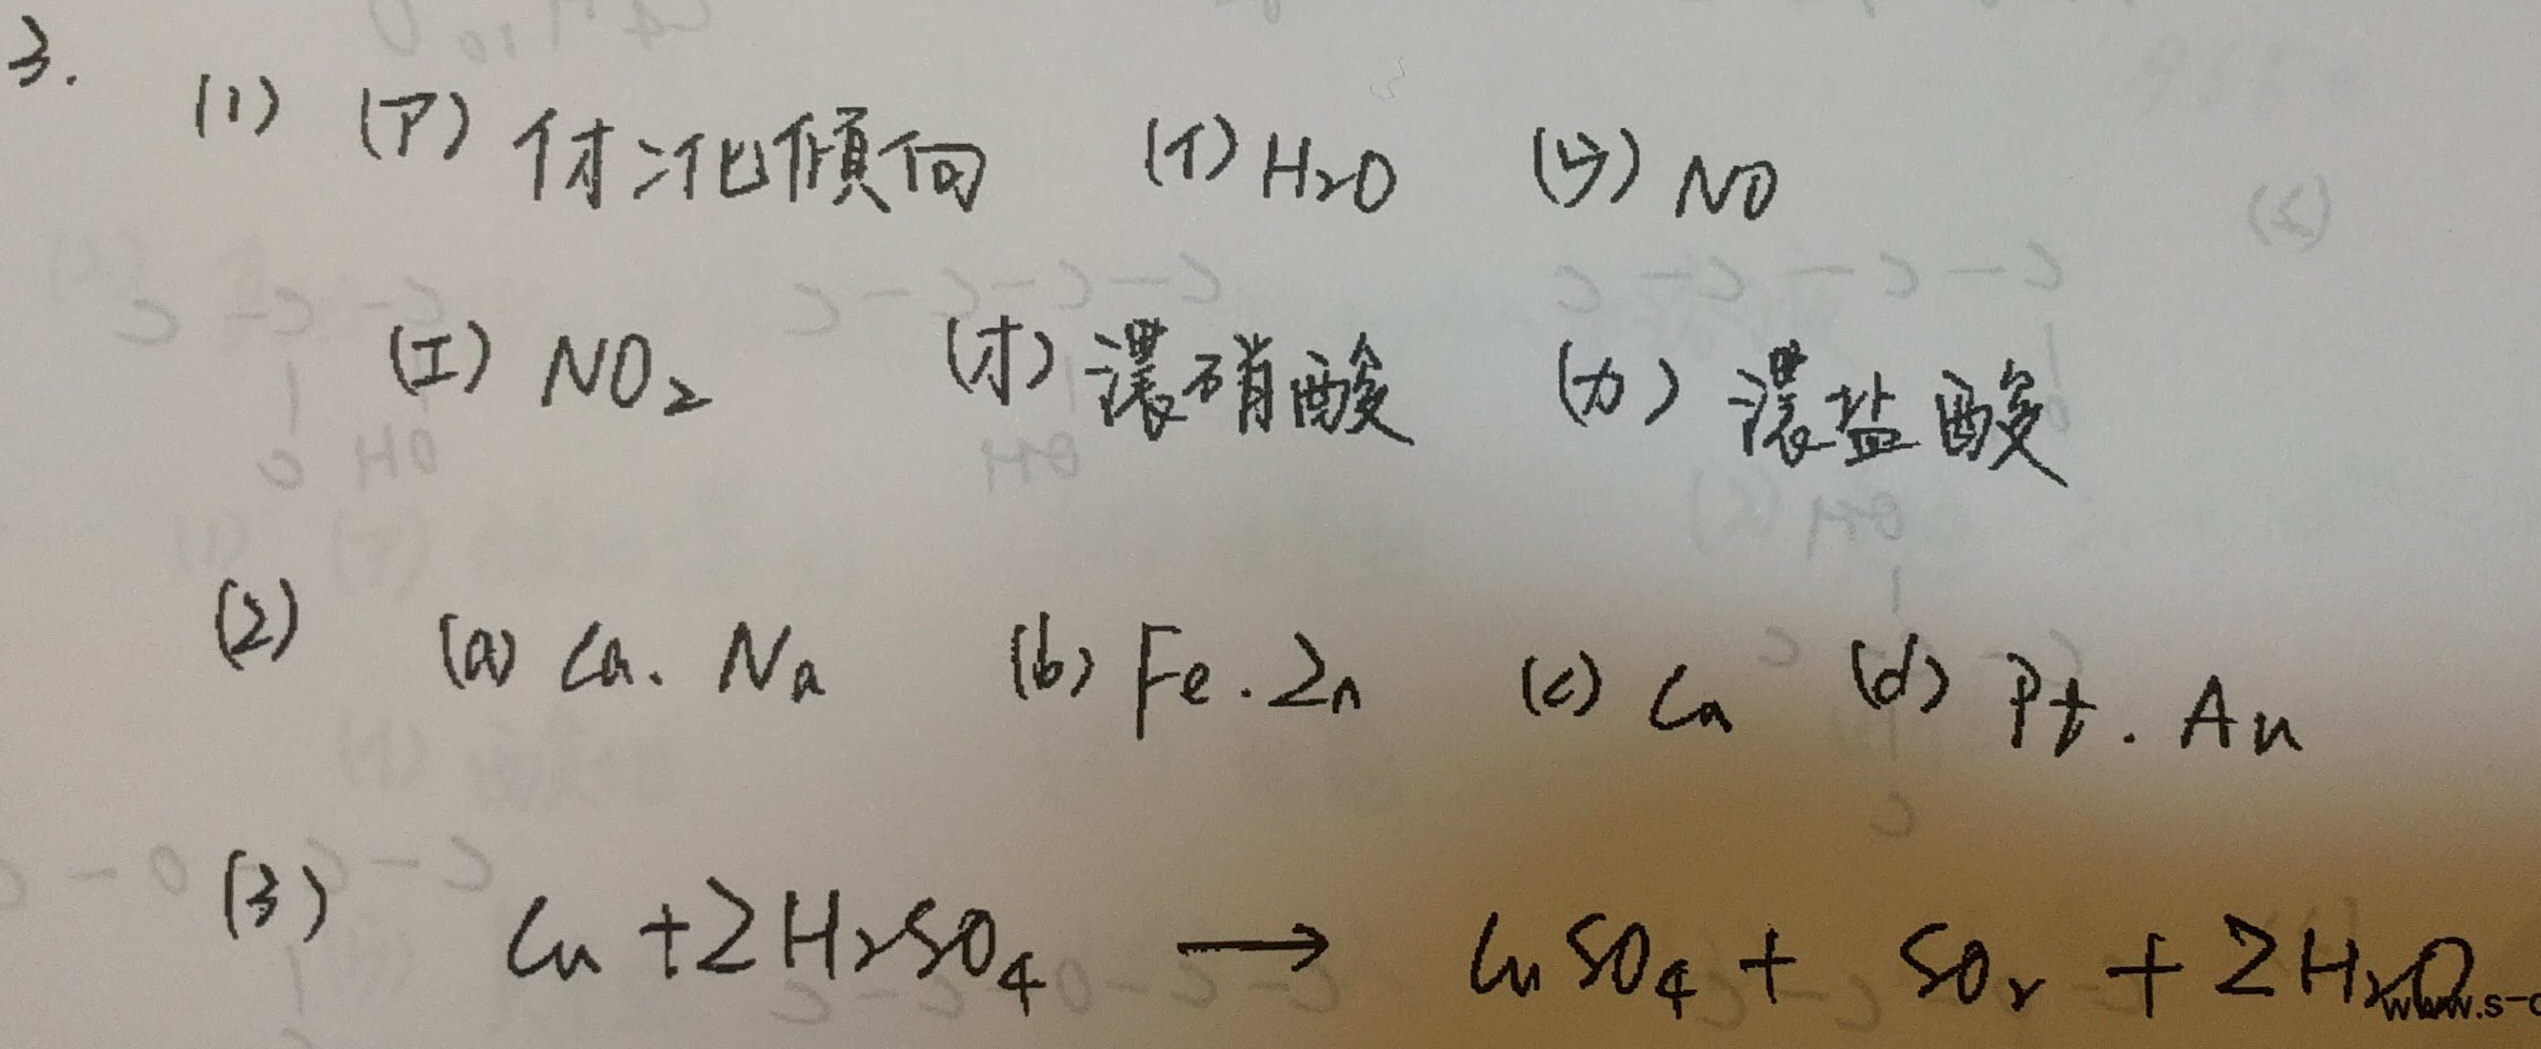 3.
(1) (ア) イオン化傾向 (イ) H₂O (ウ) NO
(エ) NO₂ (オ) 濃硝酸 (カ) 濃塩酸
(2) (a) Ca. Na (b) Fe. Zn (c) Ca (d) Pt. Au
(3) Cu + 2H₂SO₄ → CuSO₄ + SO₂ + 2H₂O
www.s-